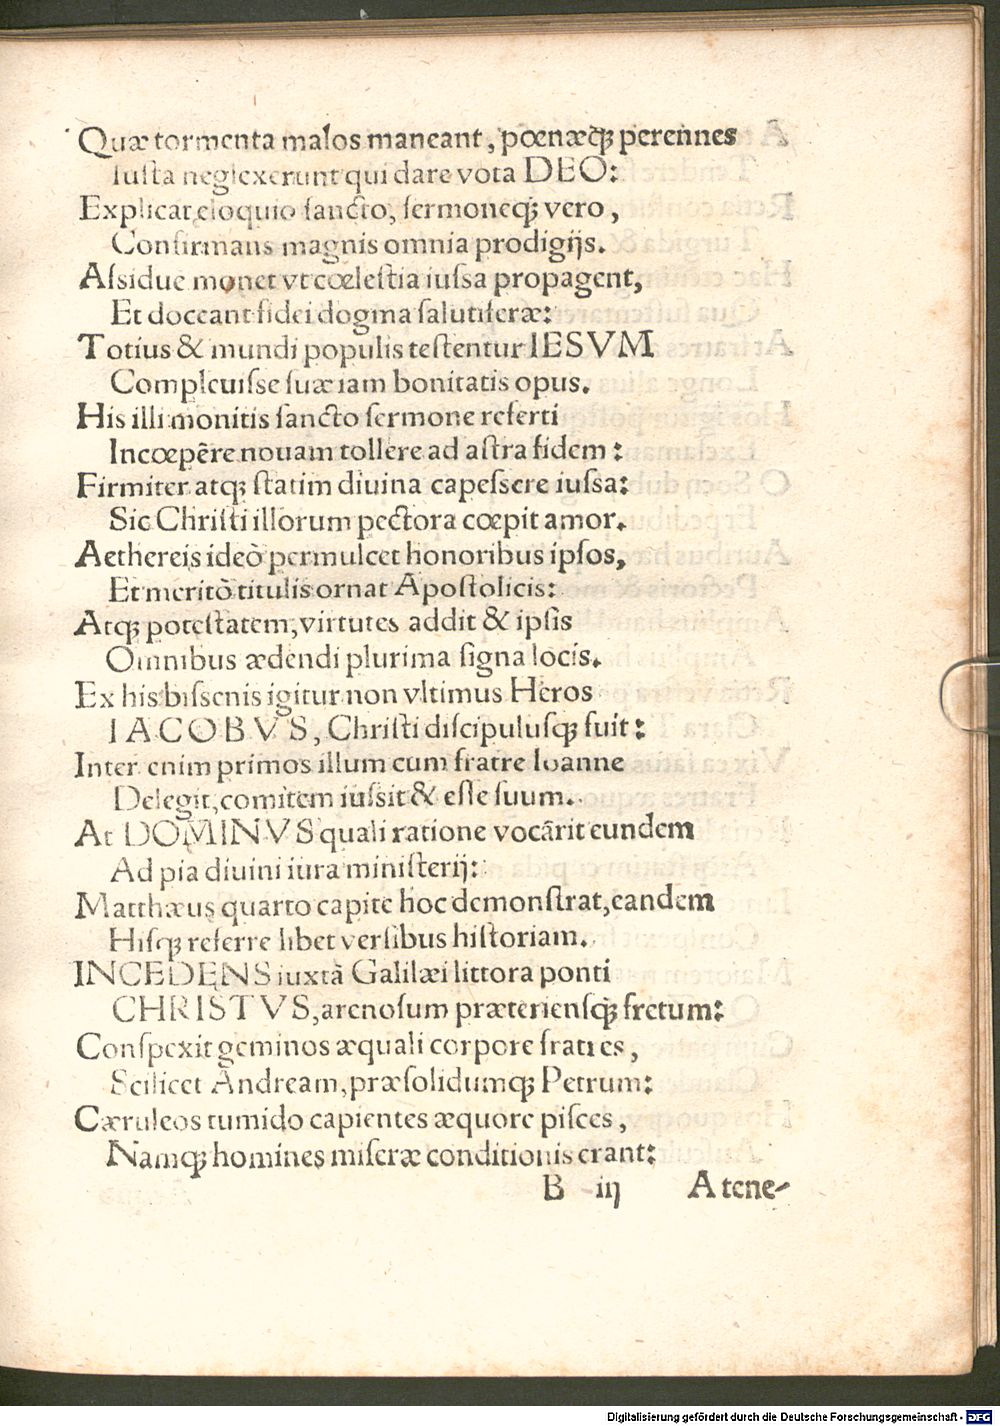 Quæ tormenta malos maneant, pœnæq́ꝫ perennes
Iuſta neglexerunt qui dare vota DEO:
Explicat eloquio ſancto, ſermoneq́ꝫ vero,
Confirmans magnis omnia prodigijs.
Aſsidue monet vt cœleſtia iuſſa propagent,
Et doceant fidei dogma ſalutiferæ:
Totius & mundi populis teſtentur IESVM
Compleuiſſe ſuæ iam bonitatis opus.
His illi monitis ſancto ſermone referti
Incœpêre nouam tollere ad aſtra fidem:
Firmiter atqꝫ ſtatim diuina capeſſere iuſſa:
Sic Chriſti illorum pectora cœpit amor.
Aethereis ideò permulcet honoribus ipſos,
Et meritò titulis ornat Apoſtolicis:
Atqꝫ poteſtatem, virtutes addit & ipſis
Omnibus ædendi plurima ſigna locis.
Ex his biſſenis igitur non vltimus Heros
IACOBVS, Chriſti diſcipulusq́ꝫ fuit:
Inter enim primos illum cum fratre Ioanne
Delegit, comitem iuſsit & eſſe ſuum.
At DOMINVS quali ratione vocârit eundem
Ad pia diuini iura miniſterij:
Matthæus quarto capite hoc demonſtrat, eandem
Hiſqꝫ referre libet verſibus hiſtoriam.
INCEDENS iuxtà Galilæi littora ponti
CHRISTVS, arenoſum præterienſq́ꝫ fretum:
Conſpexit geminos æquali corpore fratres,
Scilicet Andream, præſolidumqꝫ Petrum:
Cæruleos tumido capientes æquore piſces,
Namqꝫ homines miſeræ conditionis erant:
B iij A tene-
Digitalisierung gefördert durch die Deutsche Forschungsgemeinschaft - DFG